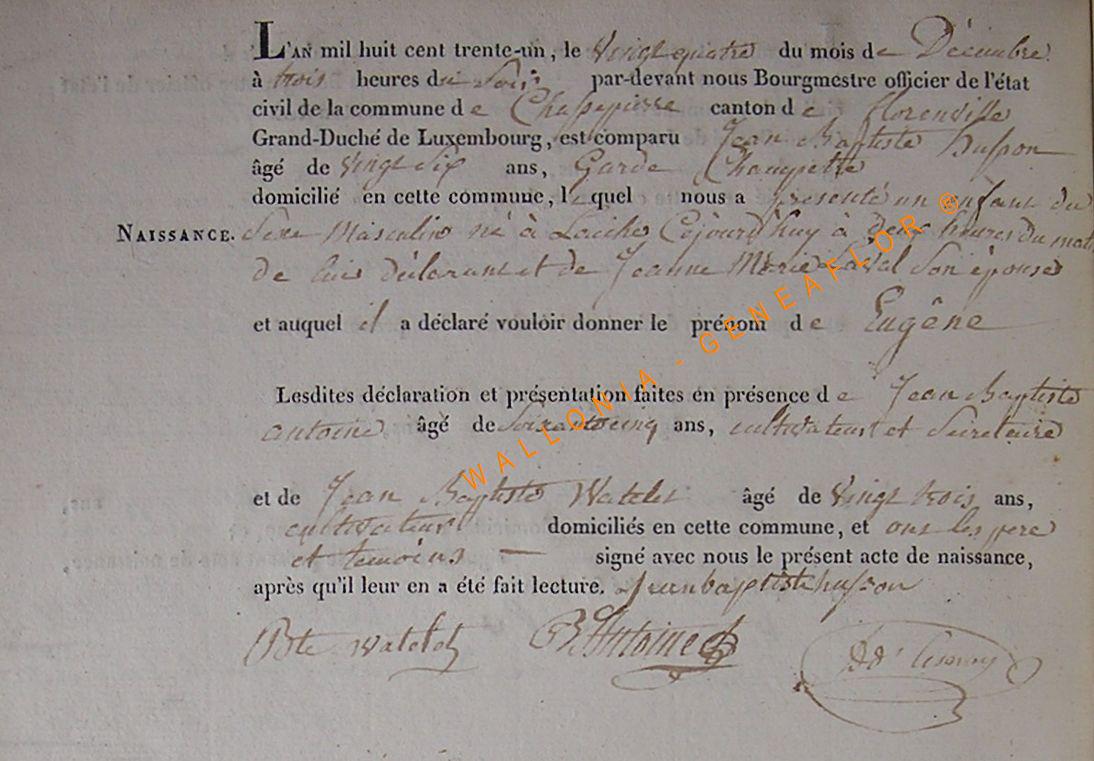 L'AN mil huit cent trente-un, le Vingt quatre du mois de Décembre
à trois heures du Soir par-devant nous Bourgmestre officier de l'état
civil de la commune de Chassepierre canton de florenville
Grand-Duché de Luxembourg, est comparu Jean Baptiste husson
âgé de Vingt Six ans, Garde Champette
domicilié en cette commune, lequel nous a présenté un enfant du
NAISSANCE. Sexe Masculin né à Laiche Cejourd'huy à deux heures du mat
de lui déclarant et de Jeanne Marie Laval Son épouse
et auquel il a déclaré vouloir donner le prénom de Eugêne
Lesdites déclaration et présentation faites en présence de Jean Baptiste
antoine âgé de Soixante cinq ans, cultivateur et Secretaire
et de Jean Baptiste Watelet âgé de Vingt trois ans,
cultivateur domiciliés en cette commune, et ont les pere
et temoins signé avec nous le présent acte de naissance,
après qu'il leur en a été fait lecture. jeanbaptiste husson
Bte Watelet B. Antoine
WALLONIA - GENEAFLOR ®